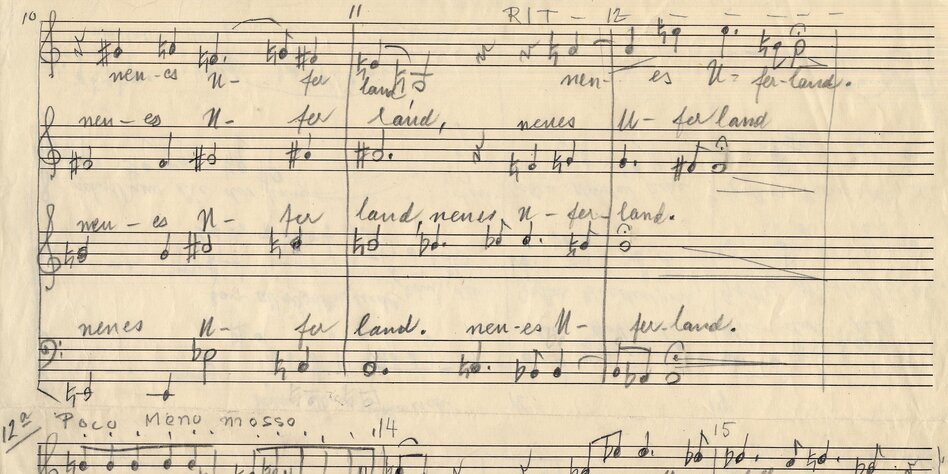 10 11 RIT - 12 - - - - - -
neu-es U- fer land neu- es U= fer-land.
neu-es U- fer land, neues U- fer land
neu-es U- fer land, neues U-fer-land.
neues U- fer land. neu-es U- fer-land.
12a Poco Meno mosso 14 15